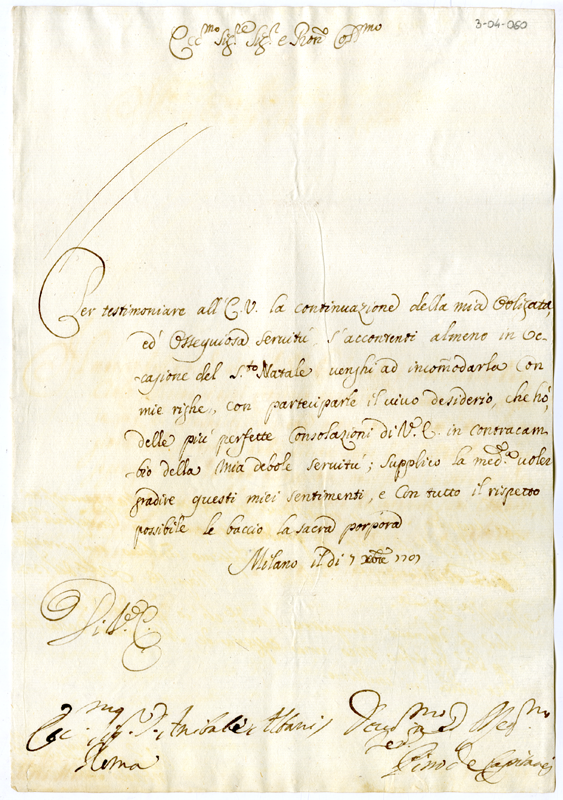 3-04-060
Ecc.mo Sig.re Sig.r e Pron Coll.mo
Per testimoniare all'E.V. la continuazione della mia obligata,
ed' ossequiosa servitù, s'accontenti almeno in oc-
-casione del S.to Natale venghi ad incomodarla con
mie righe, con parteciparle il vivo desiderio, che hò,
delle più perfette consolazioni di V.E. in contracam-
bio della mia debole servitù; supplico la med.a voler
gradire questi miei sentimenti, e con tutto il rispetto
possibile le baccio la sacra porpora
Milano il di 7 Xbre 1707
Di V.E.
Sig. D. Anibale Albani
Roma
Pino de Capitanei